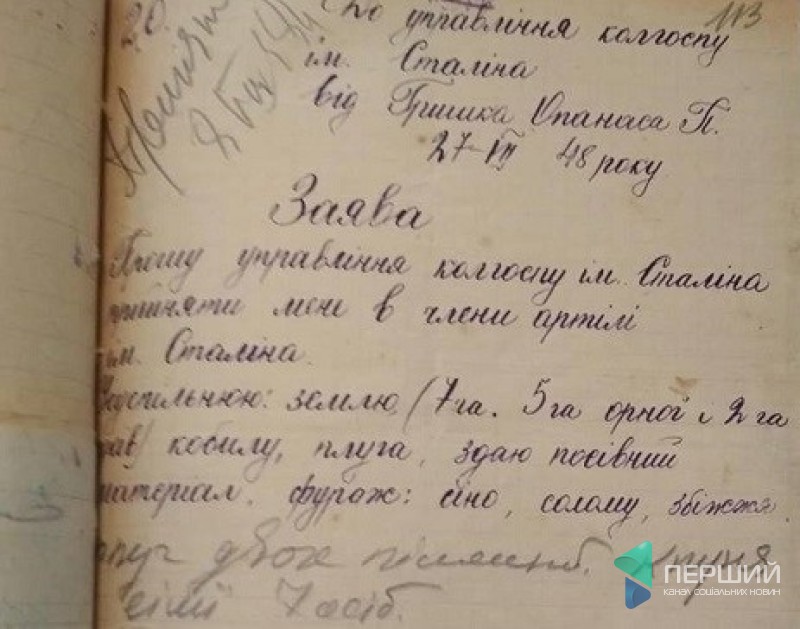 20.
113
До управління колгоспу
ім. Сталіна
від Гришка Опанаса П.
27-III 48 року
Заява
Прошу управління колгоспу ім. Сталіна
прийняти мене в члени артілі
ім. Сталіна.
Усуспільнюю: землю (7 га. 5 га орної і 2 га
кобилу, плуга, здаю посівний
материал. фураж: сіно, солому, збіжжя.
двох
сімї 7 осіб.
ПЕРШИЙ
КАНАЛ СОЦІАЛЬНИХ НОВИН